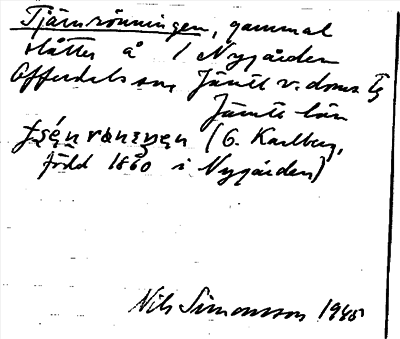 Tjärnrönningen, gammal
slåtter å / Nygården
Offerdals sn, Jämtl v. doms. tg
Jämtl. län
(G. Karlberg,
född 1860 i Nygården)
Nils Simonsson 1945